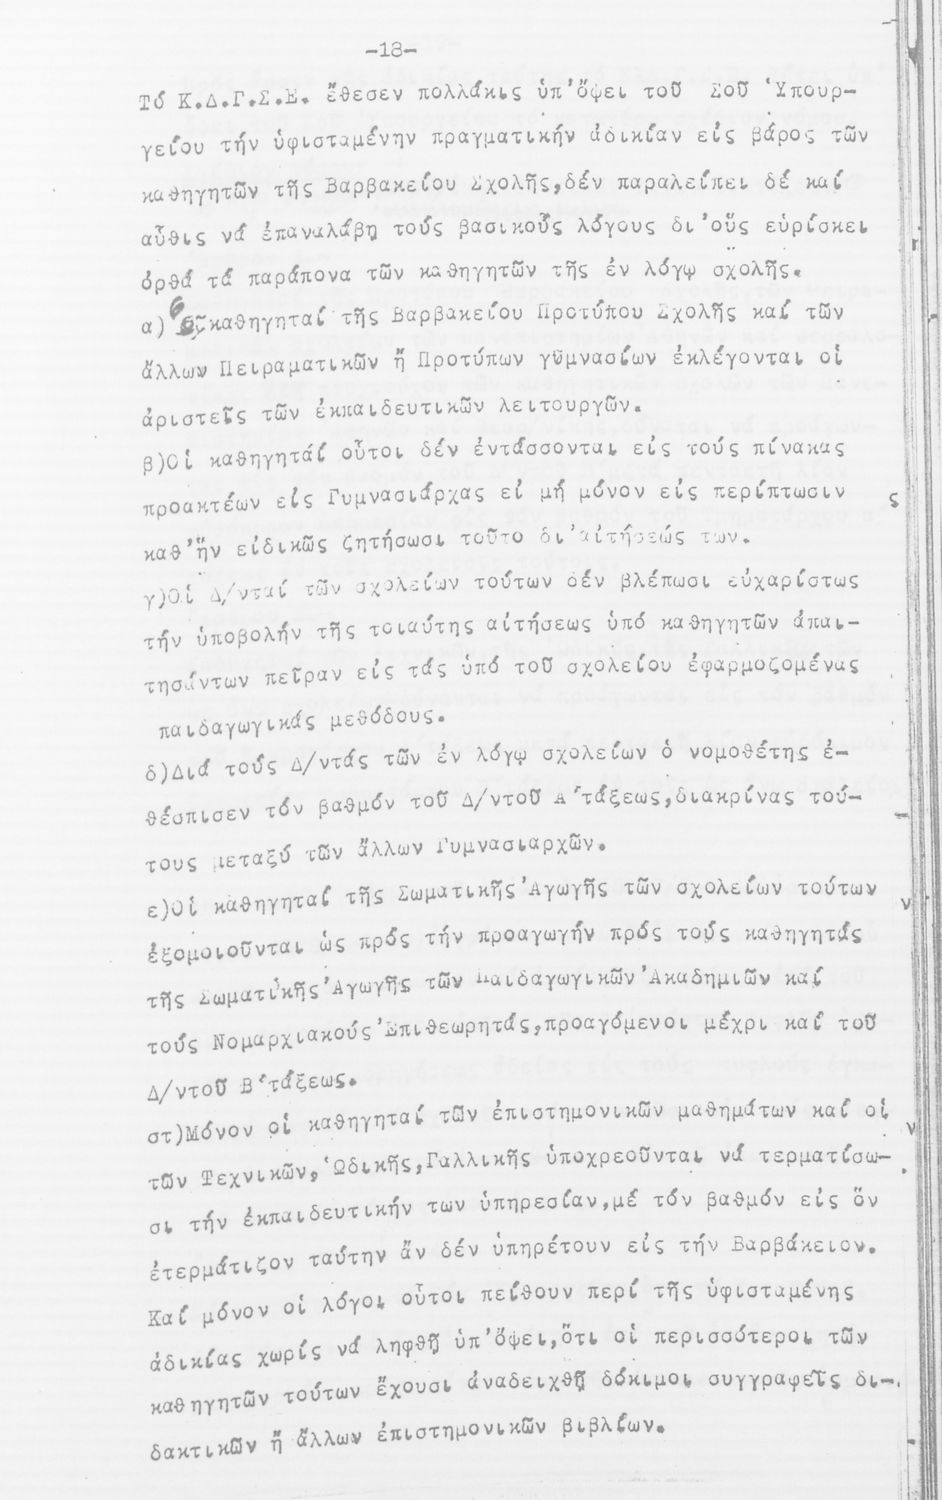 -18-
Τό Κ.Δ.Γ.Σ.Ε. ἔθεσεν πολλάκις ὑπ'ὄψει τοῦ Σοῦ Ὑπουρ-
γείου τήν ὑφισταμένην πραγματικήν ἀδικίαν εἰς βάρος τῶν
καθηγητῶν τῆς Βαρβακείου Σχολῆς,δέν παραλείπει δέ καί
αὖθις νά ἐπαναλάβῃ τούς βασικούς λόγους δι'οὕς εὑρίσκει
ὀρθά τά παράπονα τῶν καθηγητῶν τῆς ἐν λόγῳ σχολῆς.
α) καθηγηταί τῆς Βαρβακείου Προτύπου Σχολῆς καί τῶν
ἄλλων Πειραματικῶν ἤ Προτύπων γυμνασίων ἐκλέγονται οἱ
ἀριστεῖς τῶν ἐκπαιδευτικῶν λειτουργῶν.
β)Οἱ καθηγηταί οὗτοι δέν ἐντάσσονται εἰς τούς πίνακας
προακτέων εἰς Γυμνασιάρχας εἰ μή μόνον εἰς περίπτωσιν ς
καθ'ἥν εἰδικῶς ζητήσωσι τοῦτο δι'αἰτήσεώς των.
γ)Οἱ Δ/νταί τῶν σχολείων τούτων δέν βλέπωσι εὐχαρίστως
τήν ὑποβολήν τῆς τοιαύτης αἰτήσεως ὑπό καθηγητῶν ἀπαι-
τησάντων πεῖραν εἰς τάς ὑπό τοῦ σχολείου ἐφαρμοζομένας
παιδαγωγικάς μεθόδους.
δ)Διά τούς Δ/ντάς τῶν ἐν λόγῳ σχολείων ὁ νομοθέτης ἐ-
θέσπισεν τόν βαθμόν τοῦ Δ/ντοῦ Α΄τάξεως,διακρίνας τού-
τους μεταξύ τῶν ἄλλων Γυμνασιαρχῶν.
ε)Οἱ καθηγηταί τῆς Σωματικῆς Ἀγωγῆς τῶν σχολείων τούτων ν
ἐξομοιοῦνται ὡς πρός τήν προαγωγήν πρός τούς καθηγητάς
τῆς Σωματικῆς Ἀγωγῆς τῶν Παιδαγωγικῶν Ἀκαδημιῶν καί
τούς Νομαρχιακούς Ἐπιθεωρητάς,προαγόμενοι μέχρι καί τοῦ
Δ/ντοῦ Β΄τάξεως.
στ)Μόνον οἱ καθηγηταί τῶν ἐπιστημονικῶν μαθημάτων καί οἱ ν
τῶν Τεχνικῶν, Ὠδικῆς,Γαλλικῆς ὑποχρεοῦνται νά τερματίσω-
σι τήν ἐκπαιδευτικήν των ὑπηρεσίαν,μέ τόν βαθμόν εἰς ὅν
ἐτερμάτιζον ταύτην ἄν δέν ὑπηρέτουν εἰς τήν Βαρβάκειον.
Καί μόνον οἱ λόγοι οὗτοι πείθουν περί τῆς ὑφισταμένης
ἀδικίας χωρίς νά ληφθῇ ὑπ'ὄψει,ὅτι οἱ περισσότεροι τῶν
καθηγητῶν τούτων ἔχουσι ἀναδειχθῇ δόκιμοι συγγραφεῖς δι-
δακτικῶν ἤ ἄλλων ἐπιστημονικῶν βιβλίων.